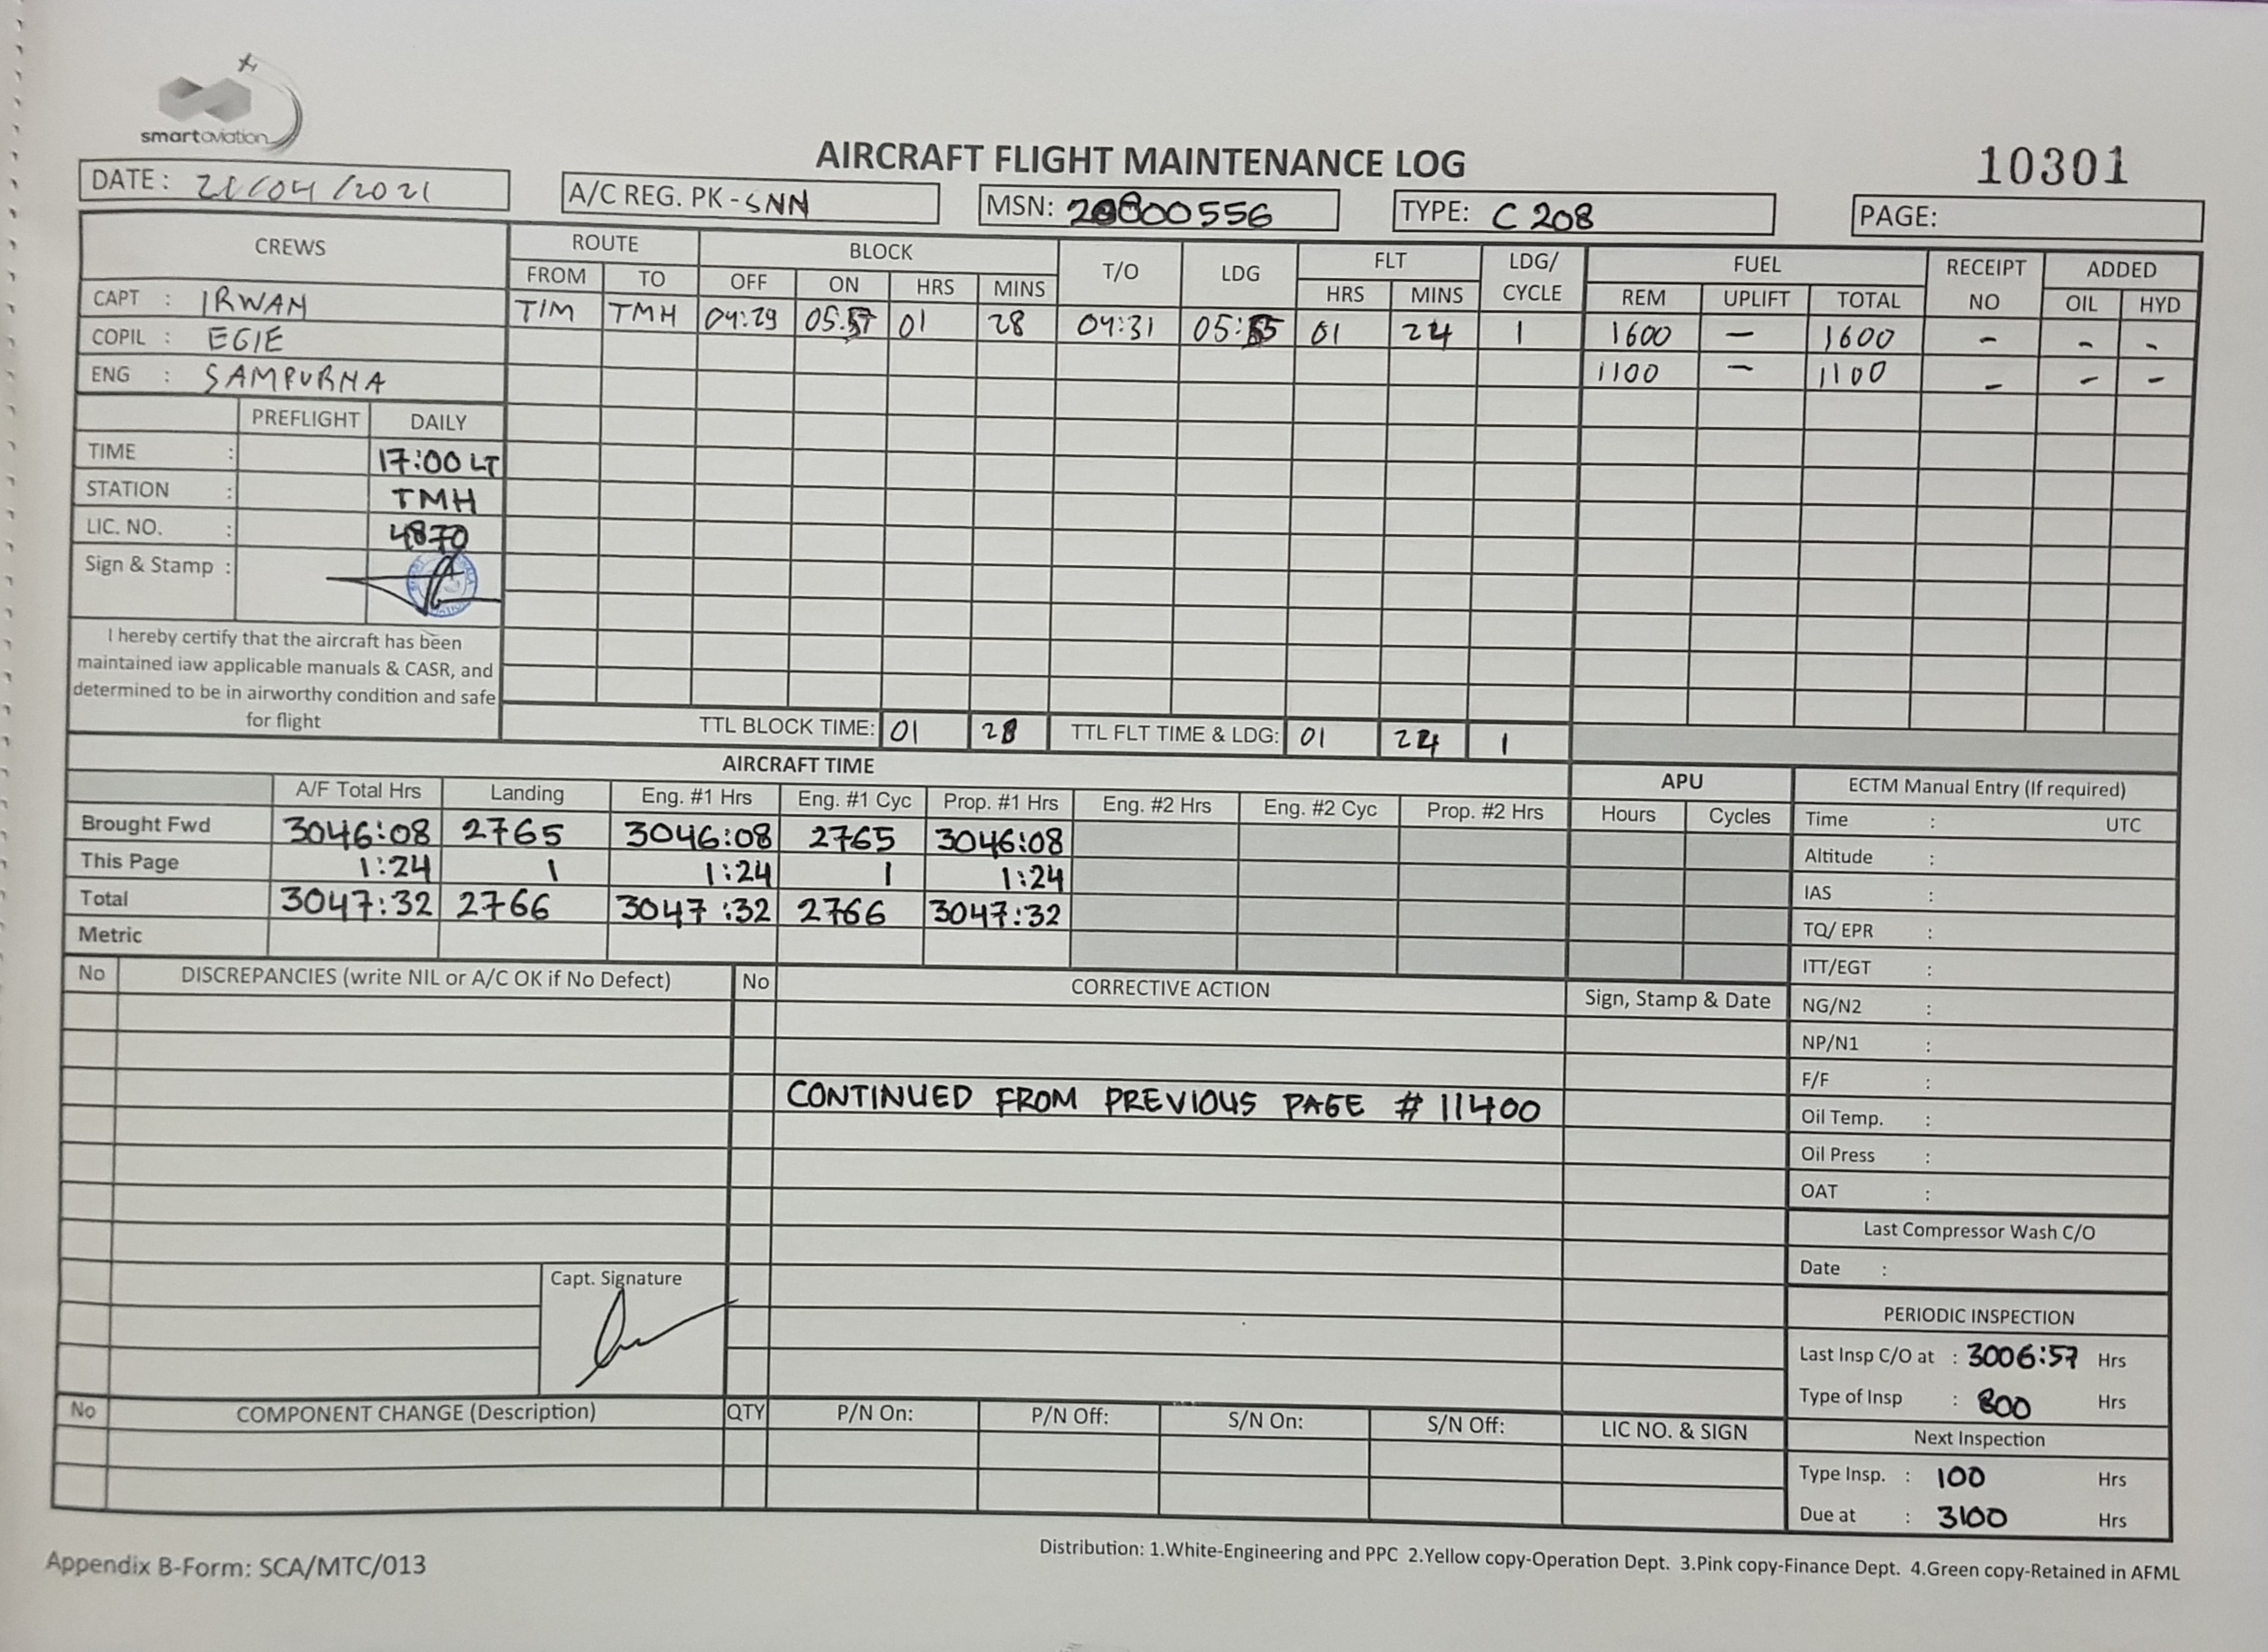 smartaviation
AIRCRAFT FLIGHT MAINTENANCE LOG
10301
DATE: 21/04/2021
A/C REG. PK-SNN
MSN: 20800556
TYPE: C 208
PAGE:
CREWS
ROUTE BLOCK T/O LDG FLT LDG/ CYCLE FUEL RECEIPT NO ADDED
FROM TO OFF ON HRS MINS HRS MINS REM UPLIFT TOTAL OIL HYD
CAPT : IRWAN
COPIL : EGIE
ENG : SAMPURNA
TIM TMH 04:29 05.57 01 28 04:31 05:55 01 24 1 1600 – 1600 - - -
1100 – 1100 - - -
PREFLIGHT DAILY
TIME : 17:00 LT
STATION : TMH
LIC. NO. : 4870
Sign & Stamp :
I hereby certify that the aircraft has been
maintained iaw applicable manuals & CASR, and
determined to be in airworthy condition and safe
for flight
TTL BLOCK TIME: 01 28 TTL FLT TIME & LDG: 01 24 1
AIRCRAFT TIME
A/F Total Hrs Landing Eng. #1 Hrs Eng. #1 Cyc Prop. #1 Hrs Eng. #2 Hrs Eng. #2 Cyc Prop. #2 Hrs
Brought Fwd 3046:08 2765 3046:08 2765 3046:08
This Page 1:24 1 1:24 1 1:24
Total 3047:32 2766 3047:32 2766 3047:32
Metric
APU
Hours Cycles
ECTM Manual Entry (If required)
Time : UTC
Altitude :
IAS :
TQ/ EPR :
ITT/EGT :
NG/N2 :
NP/N1 :
F/F :
Oil Temp. :
Oil Press :
OAT :
Last Compressor Wash C/O
Date :
PERIODIC INSPECTION
Last Insp C/O at : 3006:57 Hrs
Type of Insp : 800 Hrs
Next Inspection
Type Insp. : 100 Hrs
Due at : 3100 Hrs
No DISCREPANCIES (write NIL or A/C OK if No Defect) No CORRECTIVE ACTION Sign, Stamp & Date
CONTINUED FROM PREVIOUS PAGE # 11400
Capt. Signature
No COMPONENT CHANGE (Description) QTY P/N On: P/N Off: S/N On: S/N Off: LIC NO. & SIGN
Appendix B-Form: SCA/MTC/013
Distribution: 1.White-Engineering and PPC 2.Yellow copy-Operation Dept. 3.Pink copy-Finance Dept. 4.Green copy-Retained in AFML